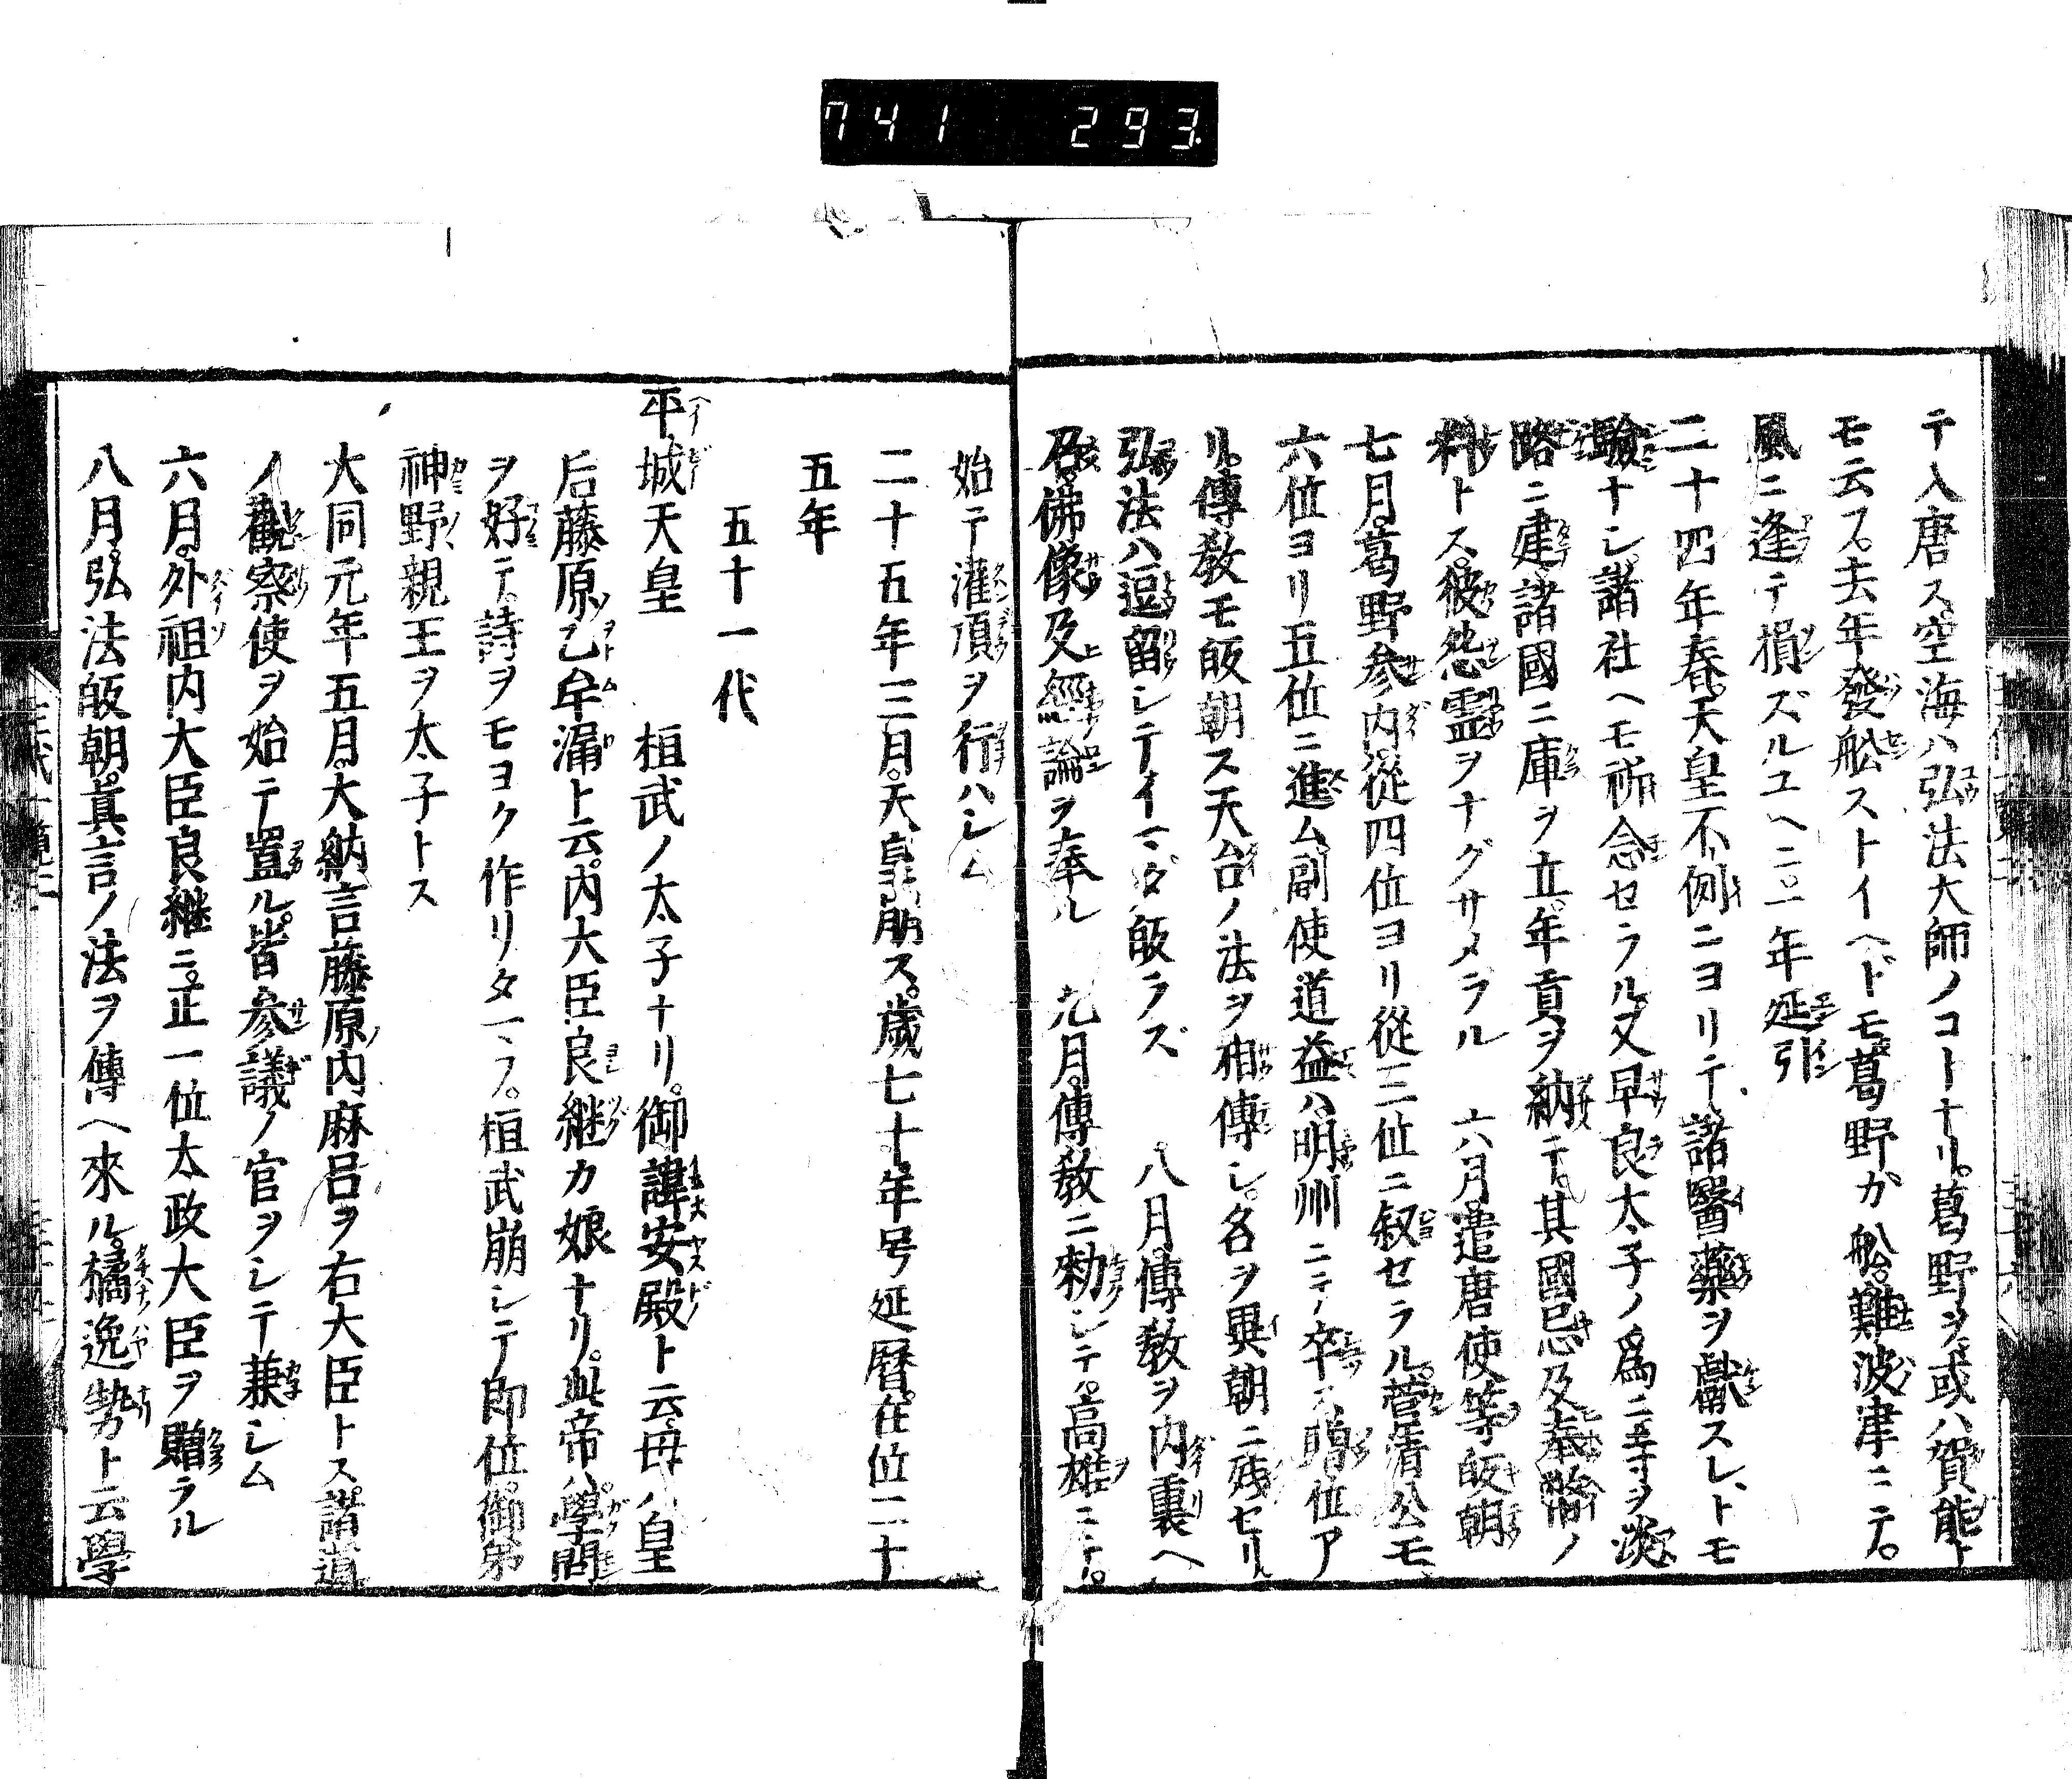 741 293
テ入唐ス。空海ハ弘法大師ノコトナリ。葛野ヲ或ハ賀能ト
モ云フ。去年發舩ストイヘドモ葛野カ舩。難波津ニテ。
風ニ逢テ損ズルユヘニ。一年延引
二十四年春。天皇不例ニヨリテ、諸醫藥ヲ獻スレトモ
驗ナシ。諸社ヘモ祈念セラル。又早良太子ノ爲ニ寺ヲ淡
路ニ建。諸國ニ庫ヲ立。年貢ヲ納テ。其國忌及奉幣ノ
料トス。彼怨靈ヲナグサメラル 六月遣唐使等皈朝
七月。葛野参内從四位ヨリ從三位ニ叙セラル。菅清公モ
六位ヨリ五位ニ進ム副使道益ハ明州ニテ卒ス贈位ア
リ。傳敎モ皈朝ス天台ノ法ヲ相傳シ。名ヲ異朝ニ残セリ
弘法ハ逗留シテイマダ皈ラズ 八月傳敎ヲ内裏ヘ
召。佛像及經論ヲ奉ル 九月。傳敎ニ勅シテ。高雄ニテ。
始テ灌頂ヲ行ハシム
二十五年三月。天皇崩ス。歲七十。年号延暦。在位二十
五年
五十一代
平城天皇 桓武ノ太子ナリ。御諱安殿ト云。母ハ皇
后藤原乙牟漏ト云。内大臣良継カ娘ナリ。此帝ハ學問
ヲ好テ。詩ヲモヨク作リタマフ。桓武崩シテ即位。御弟
神野親王ヲ太子トス
大同元年五月。大納言藤原内麻呂ヲ右大臣トス。諸道
ノ觀察使ヲ始テ置ル。皆参議ノ官ヲシテ兼シム
六月。外祖内大臣良継ニ。正一位太政大臣ヲ贈ラル
八月。弘法皈朝。眞言ノ法ヲ傳ヘ來ル。橘逸勢ト云學